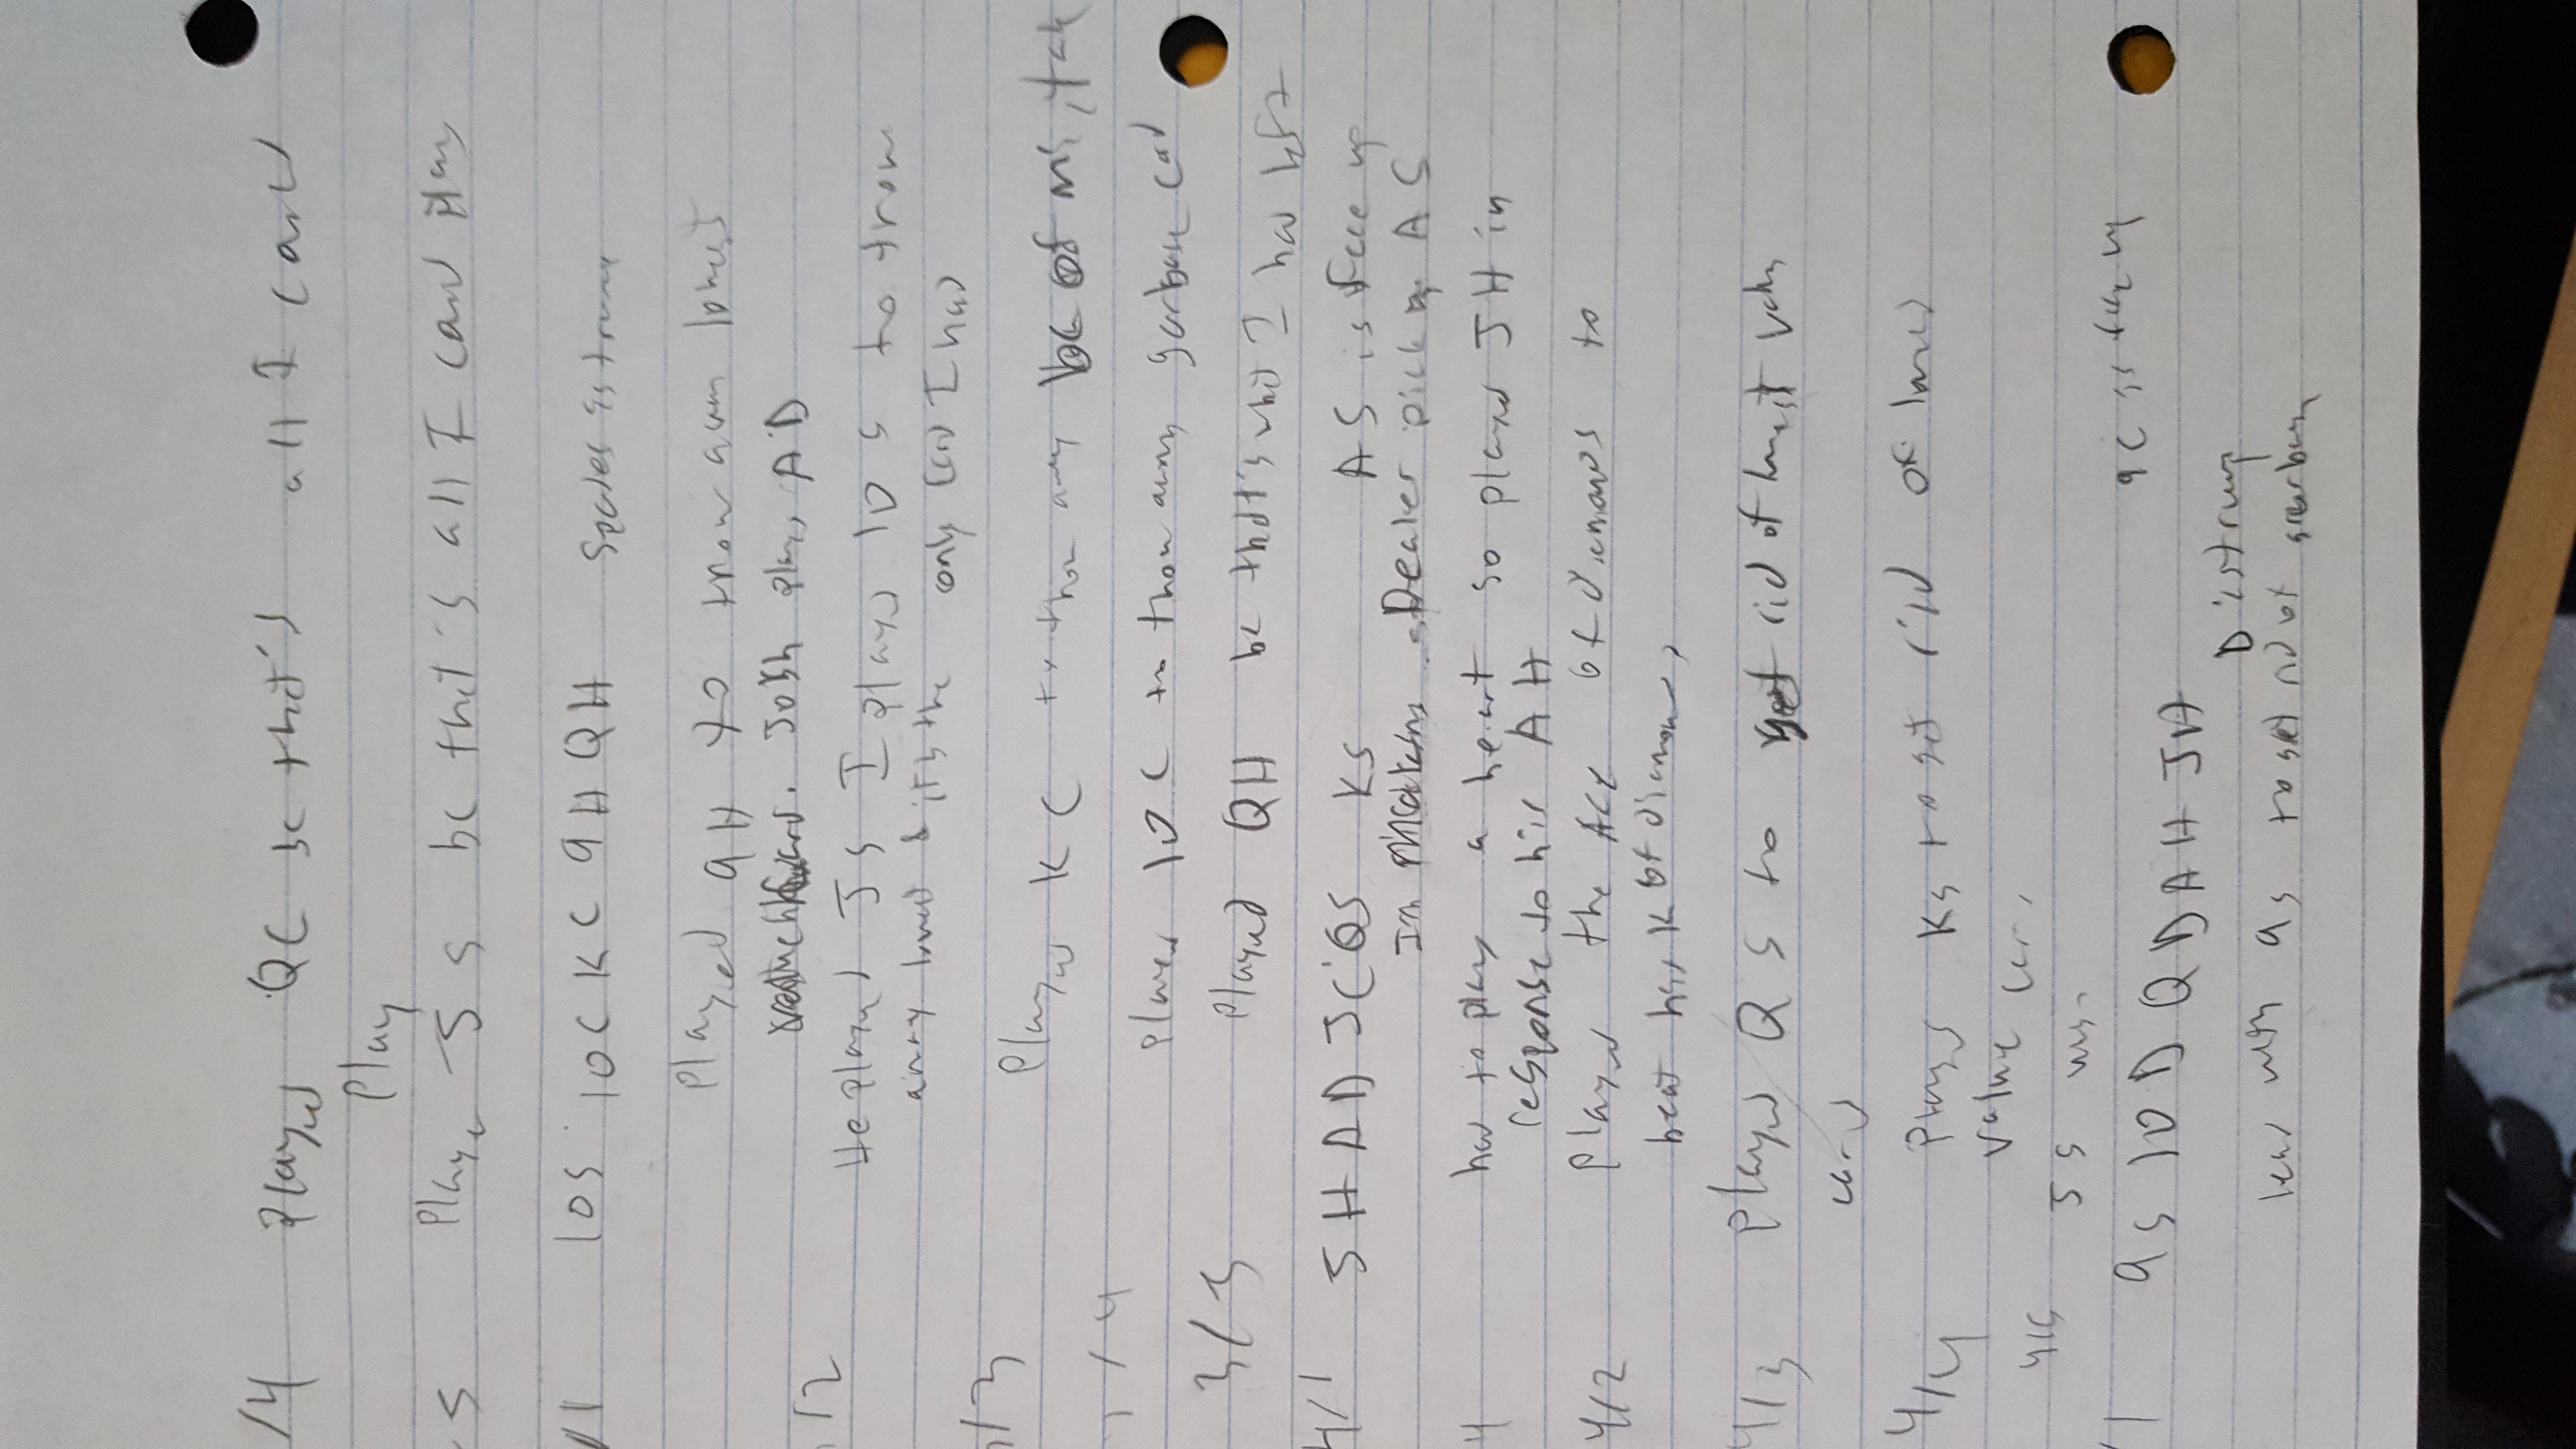 /4 Played QC bc that's all I could
Play
5 Played JS bc that's all I could play
/1 10S 10C KC 9H QH Spades is trump
Played 9H to throw away lowest
card. Josh plays AD
/2
He played JS I played 10 S to throw
away lowest & it's the only card I had
/3
Played KC to throw away bc of mistake
/4
played 10C to throw away garbage card
3/5 Played QH bc that's what I had left
4/1 JH AD JC QS KS AS is face up
Dealer picks up AS
4 had to play a heart so played JH in
response to his AH
4/2 Played the Ace of diamonds to
beat his K of diamonds
4/3 Played QS to get rid of lowest value
card
4/4 Played KS to get rid of lowest
value card
4/5 JS
/1 9S 10D QD AH JH 9C is face up
D is trump
lead with 9s to get rid of garbage